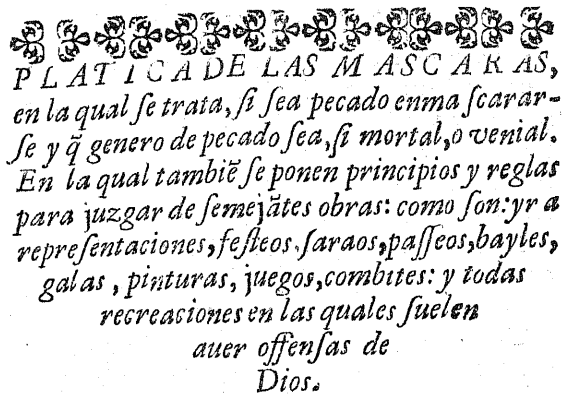 PLATICA DE LAS MASCARAS,
en la qual ſe trata, ſi ſea pecado enmaſcarar-
ſe y q̃ genero de pecado ſea, ſi mortal, o venial.
En la qual tambiẽ ſe ponen principios y reglas
para juzgar de ſemejãtes obras: como ſon: yr a
repreſentaciones, feſteos, ſaraos, paſſeos, bayles,
galas, pinturas, juegos, combites: y todas
recreaciones en las quales ſuelen
auer offenſas de
Dios.